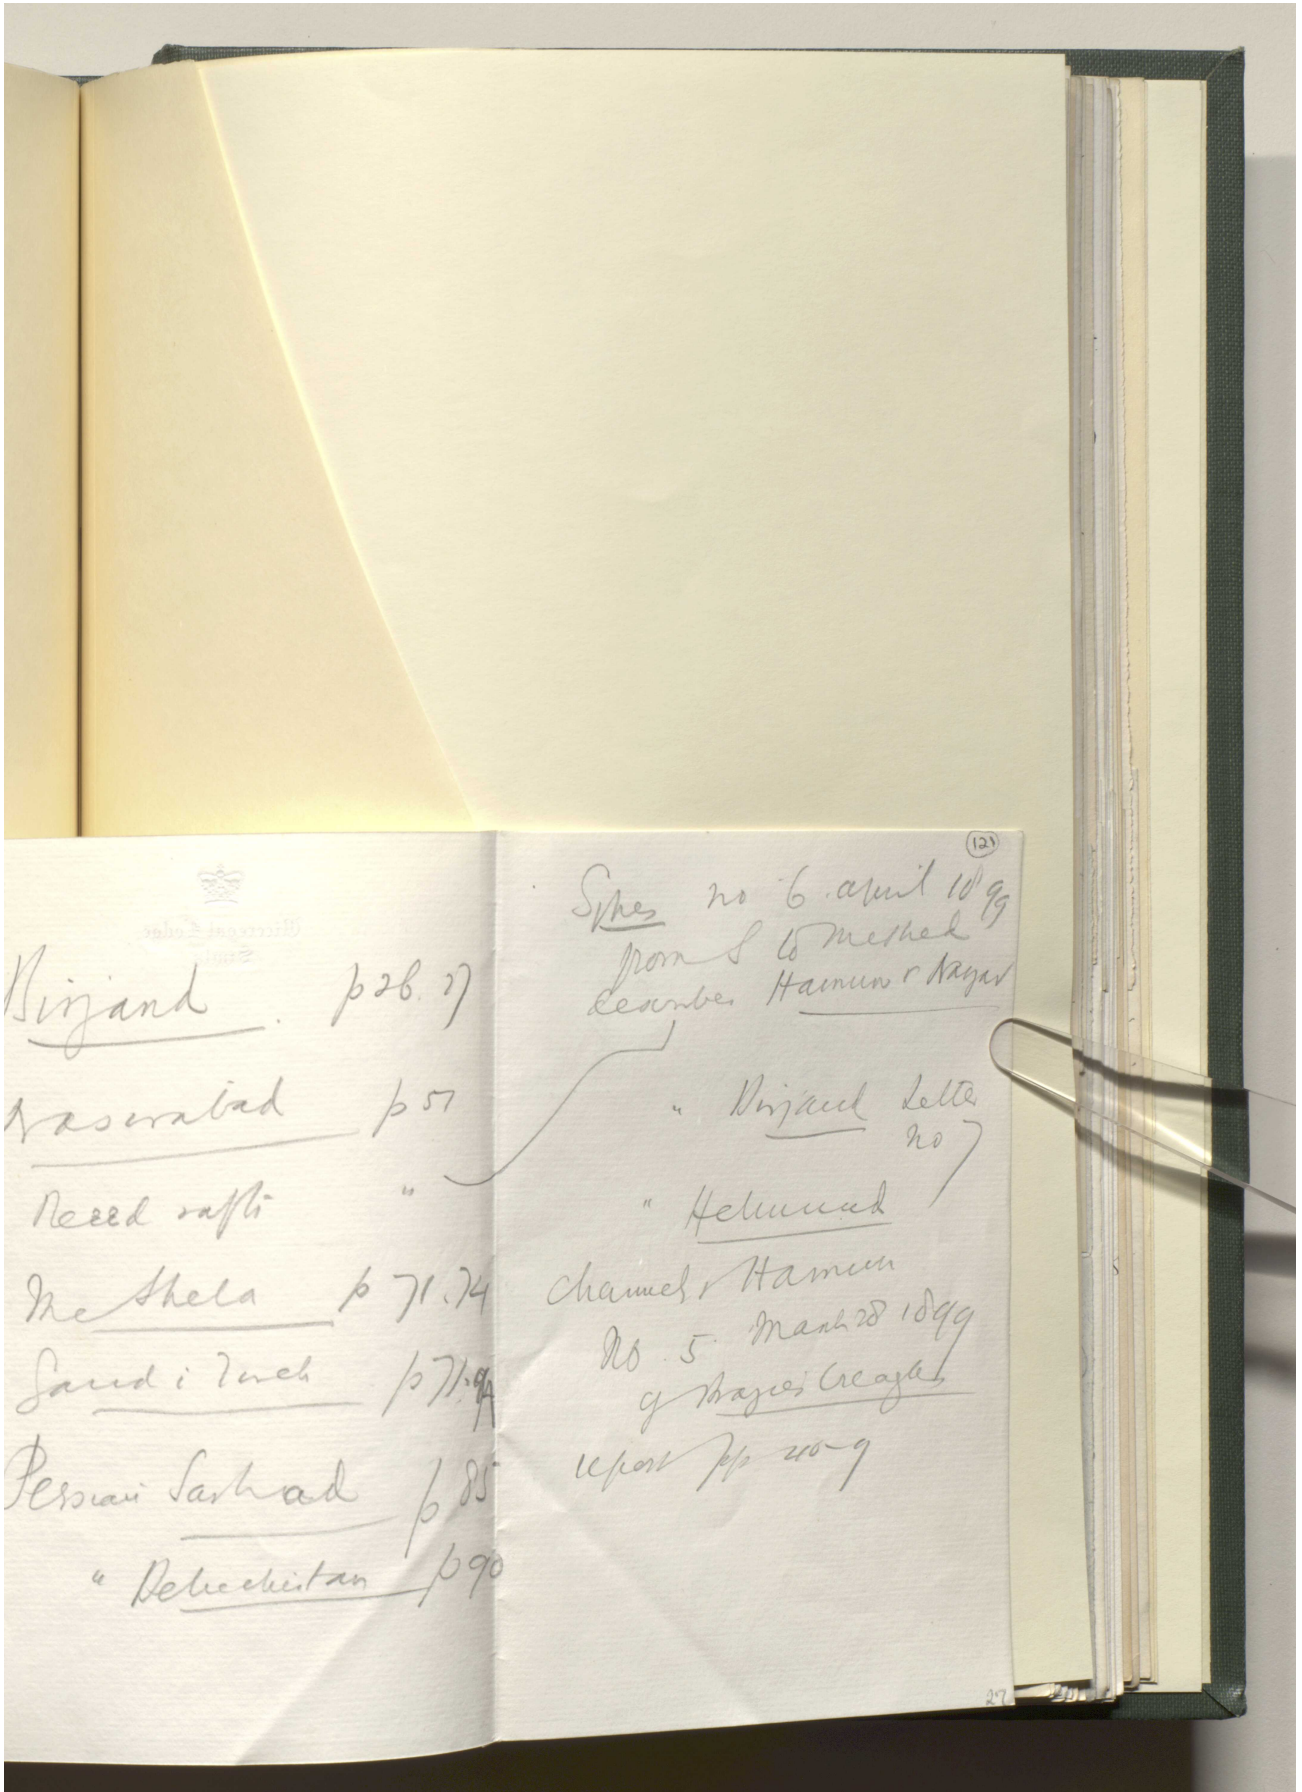 Birjand p 26. 27
Nasirabad p 51
Reed rafts "
The Shela p 71. 74
Gaud i Zireh p 71.
Persian Sarhad p 85
" Beluchistan p 90
121
Sykes no 6. April 1899
from S to Meshed
describes Hamun &
" Birjand Letter
no 7
" Helmund
Channels & Hamun
No. 5. March 28 1899
report pp
27